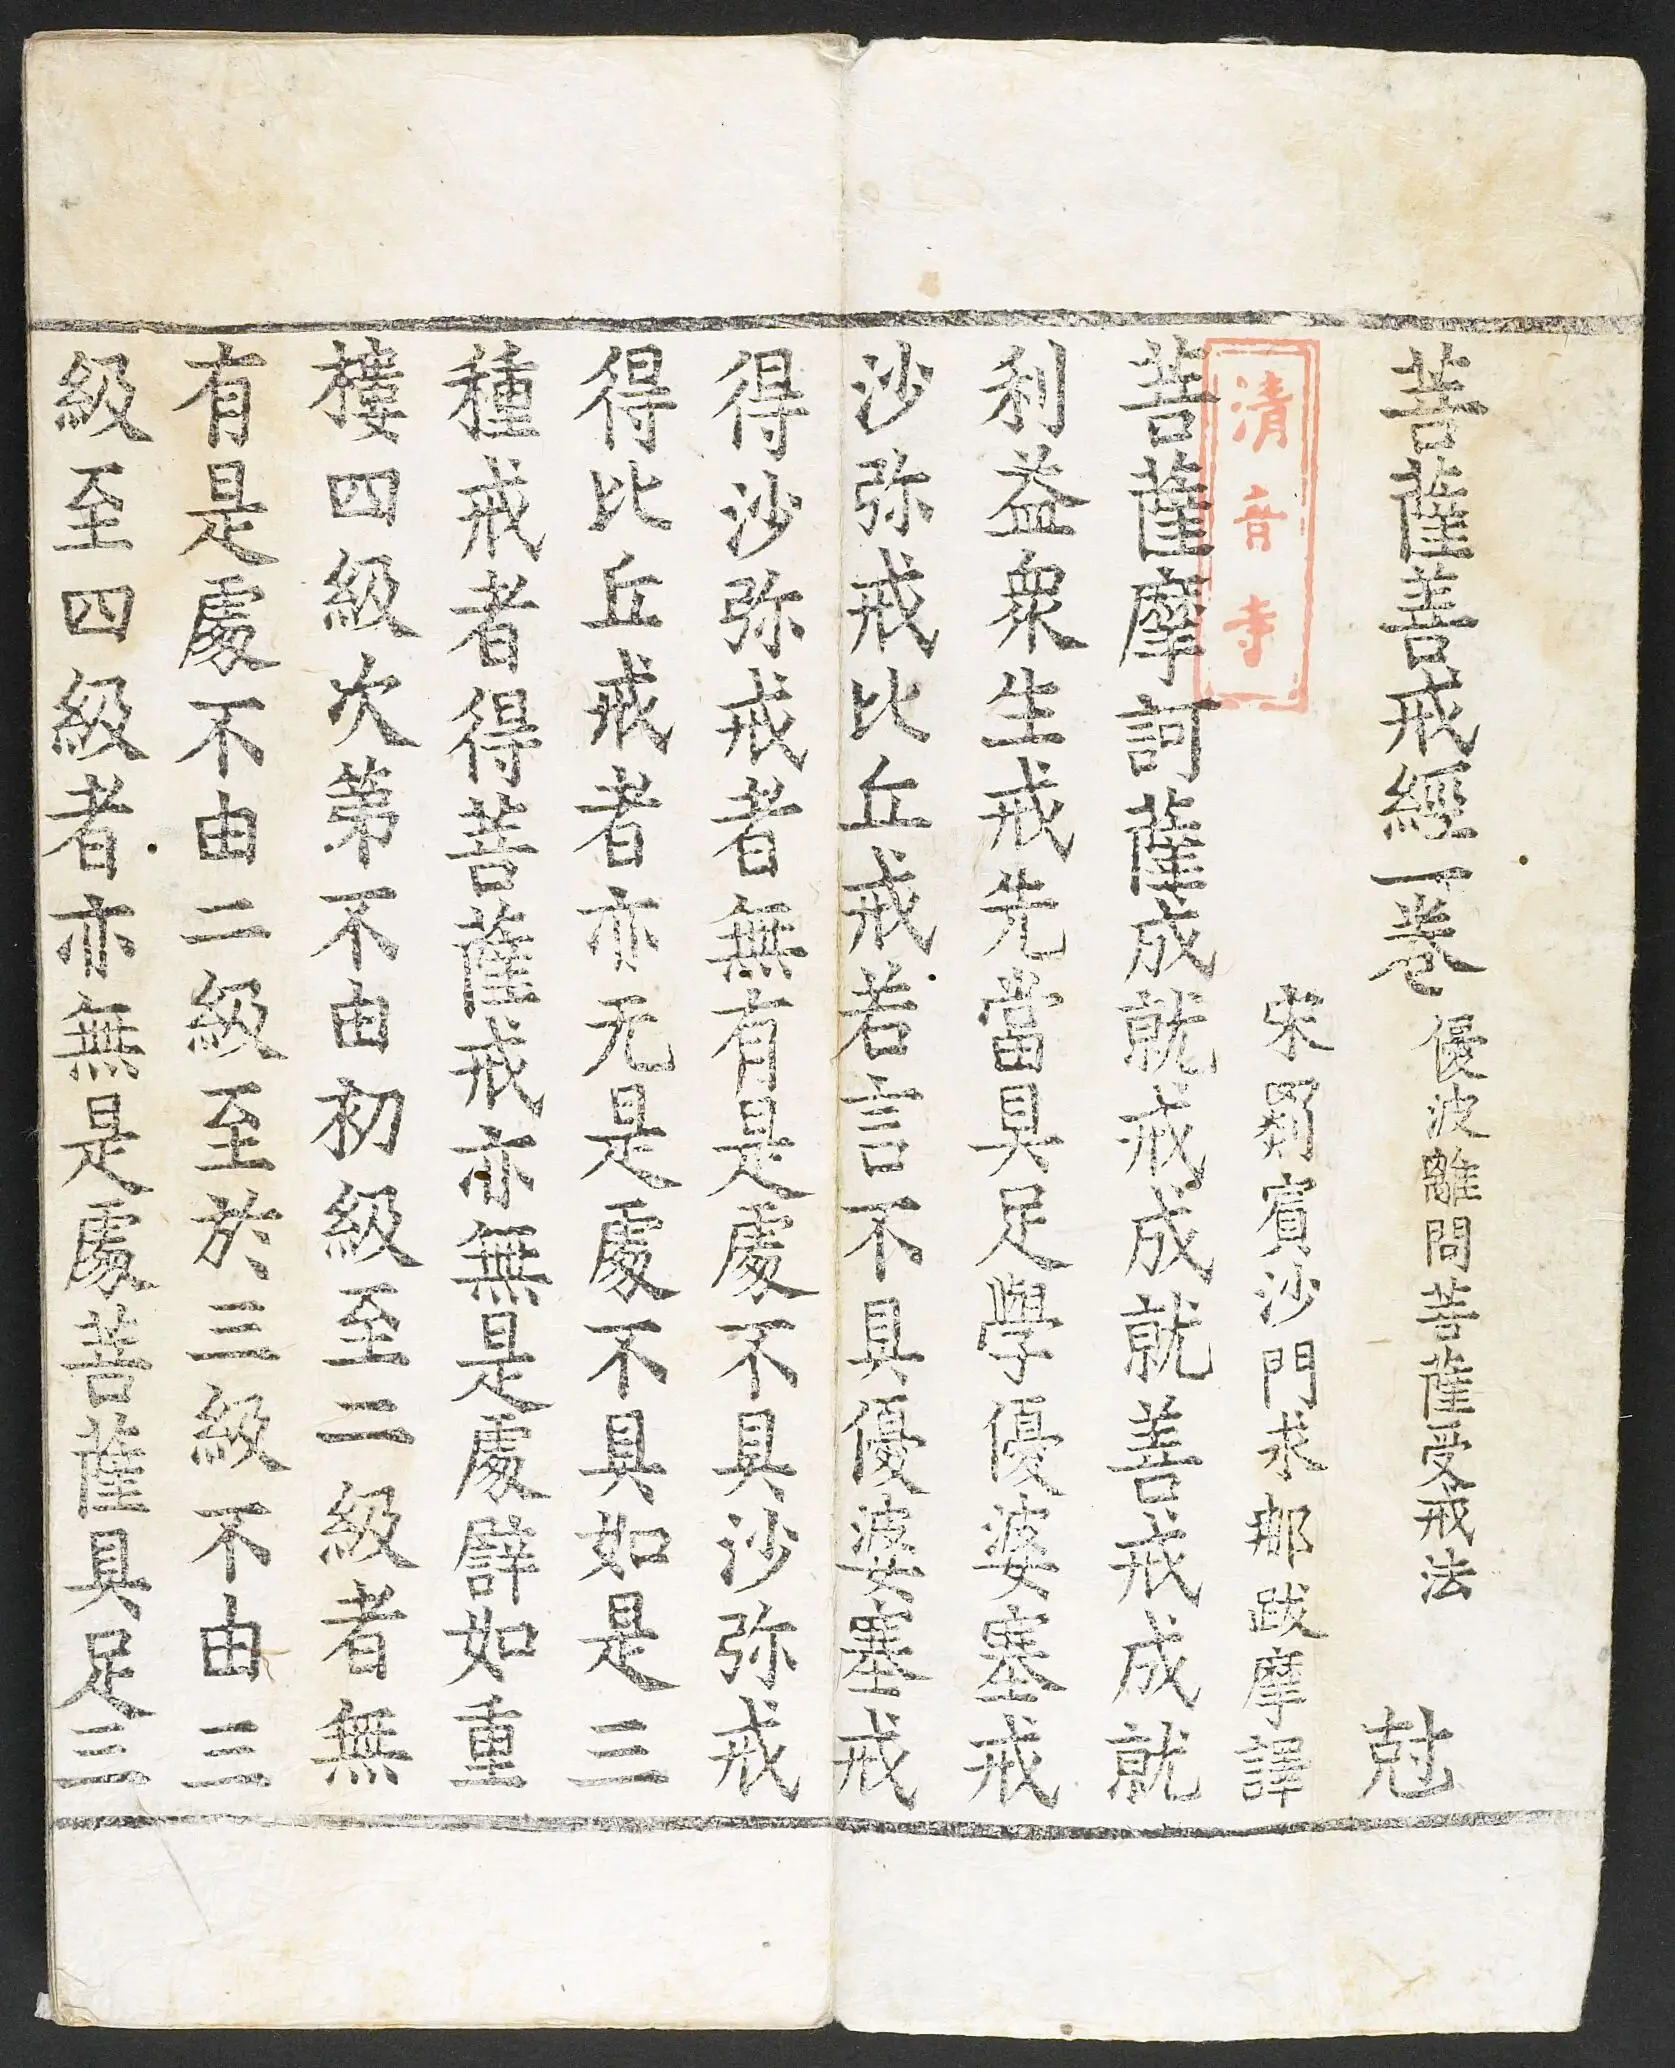 菩薩善戒經一卷 優波離問菩薩受戒法 尅
清音寺
宋罽賓沙門求那跋摩譯
菩薩摩訶薩成就戒成就善戒成就
利益衆生戒先當具足學優婆塞戒
沙弥戒比丘戒若言不具優婆塞戒
得沙弥戒者無有是處不具沙弥戒
得比丘戒者亦无是處不具如是三
種戒者得菩薩戒亦無是處譬如重
樓四級次第不由初級至二級者無
有是處不由二級至於三級不由三
級至四級者亦無是處菩薩具足三